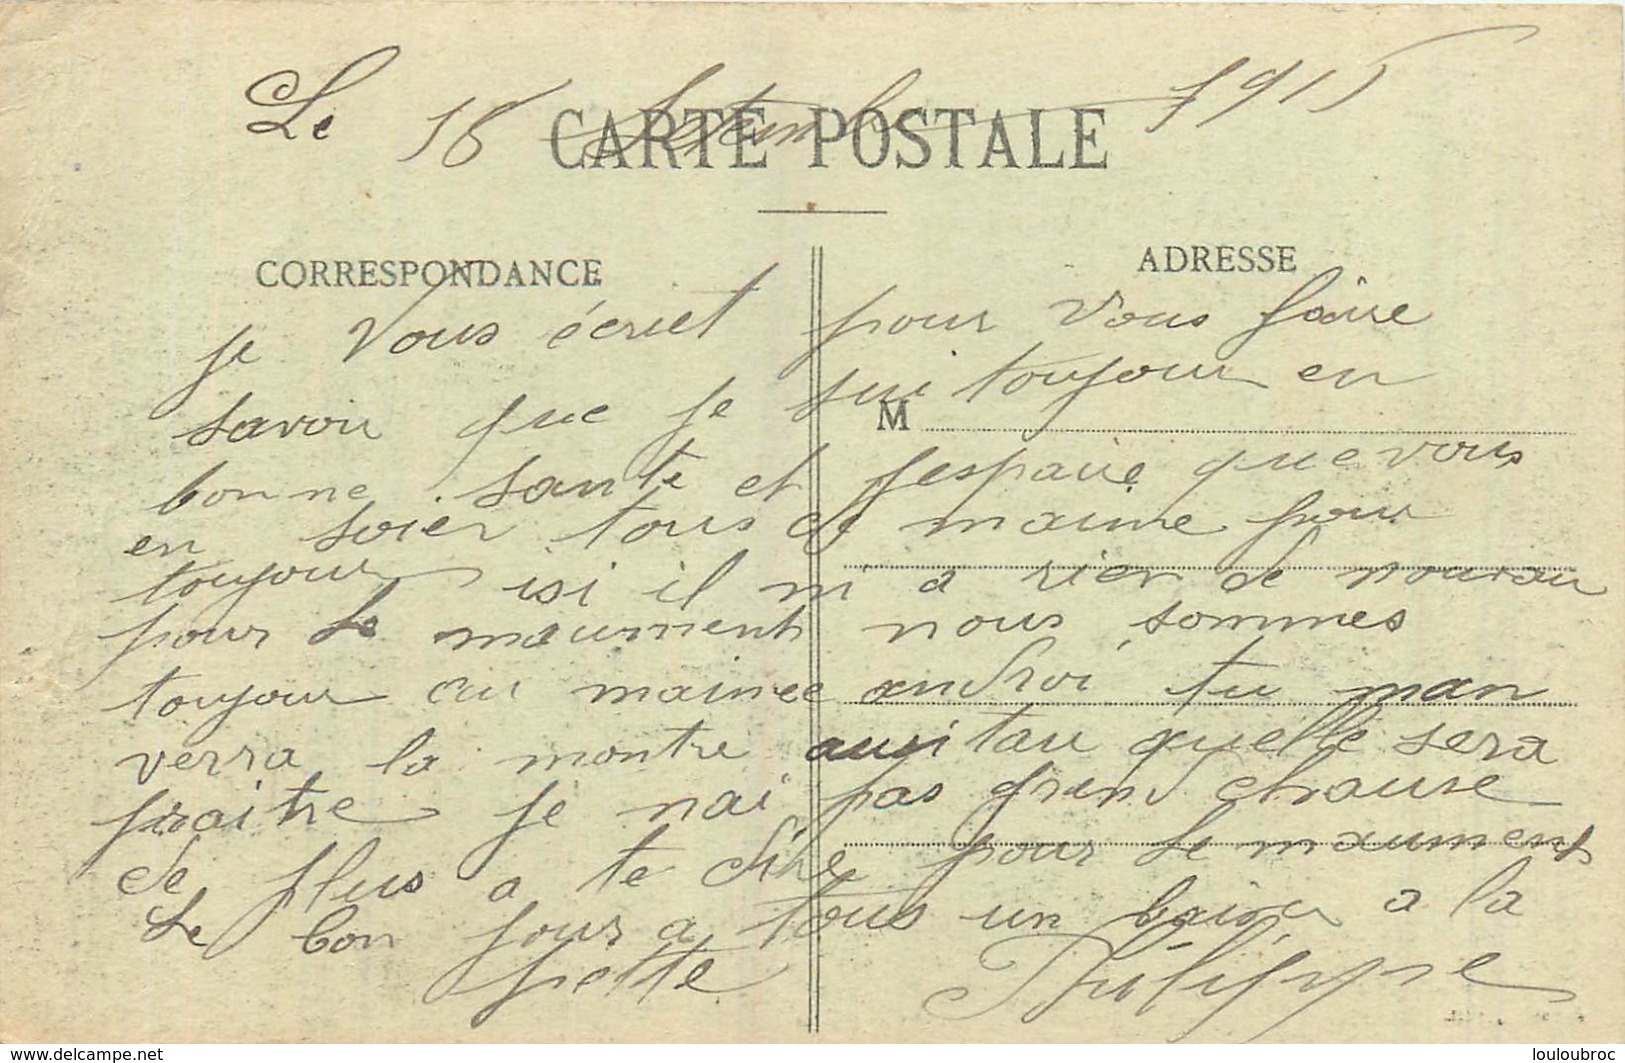 Le 16 Setemb 1915
CARTE POSTALE
CORRESPONDANCE
ADRESSE
M
je vous écriet pour vous faire
savoir que je sui toujour en
bonne santé et jespaire que vous
en soier tous de maime pour
toujour isi il ni a rien de nouvau
pour le maument nous sommes
toujour au mainee androi tu man
verra la montre ausitau quelle sera
praitre je nai pas grand chause
de plus a te dire pour le maument
le bon jour a tous un baiser a la
petite Philippe
www.delcampe.net
louloubroc